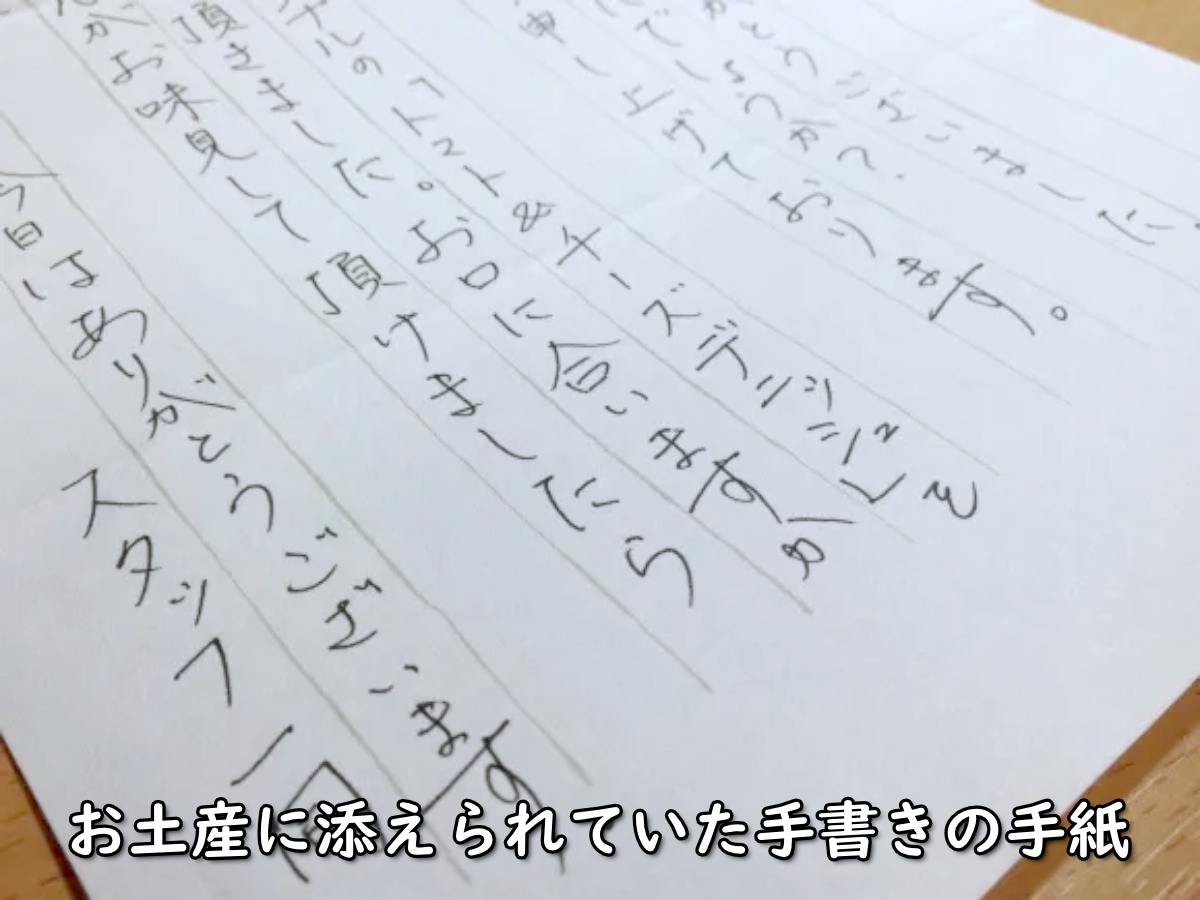 がとうございました。
でしょうか？
申し上げております。
ルの「トマト&チーズ を
頂きました。お口に合いますか
がお味見して頂けましたら
今日はありがとうございます
スタッフ一同
お土産に添えられていた手書きの手紙